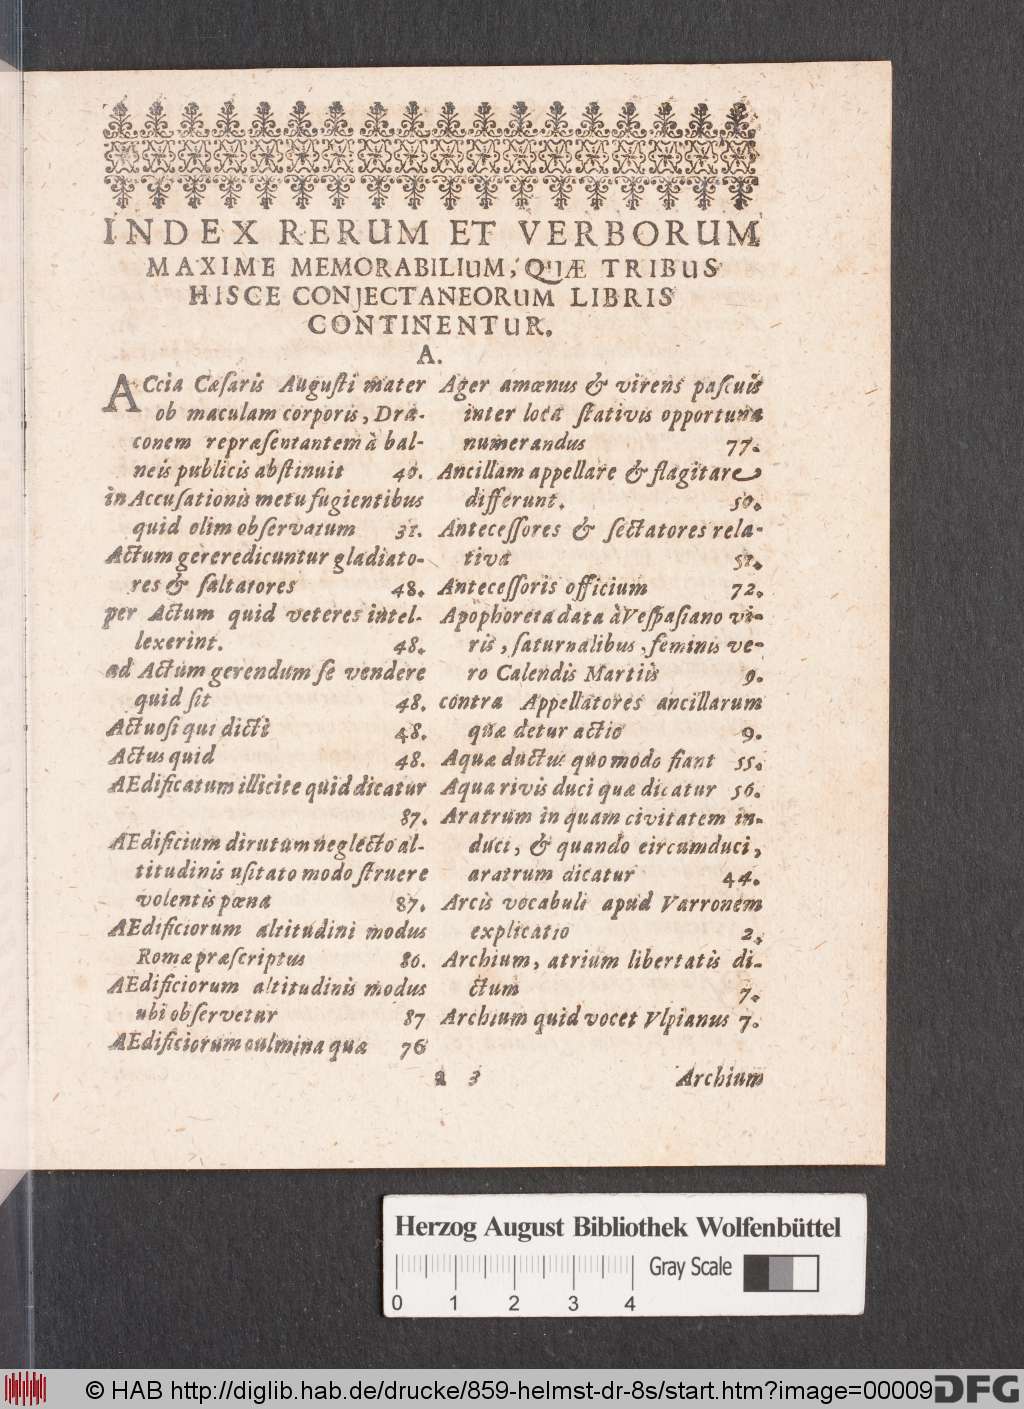 INDEX RERUM ET VERBORUM
MAXIME MEMORABILIUM, QUÆ TRIBUS
HISCE CONJECTANEORUM LIBRIS
CONTINENTUR.
A.
ACcia Cæsaris Augusti mater
ob maculam corporis, Dra-
conem repræsentantem à bal-
neis publicis abstinuit 40.
in Accusationis metu fugientibus
quid olim observatum 31.
Actum gereredicuntur gladiato-
res & saltatores 48.
per Actum quid veteres intel-
lexerint. 48.
ad Actum gerendum se vendere
quid sit 48.
Actuosi qui dicti 48.
Actus quid 48.
AEdificatum illicite quid dicatur
87.
AEdificium dirutum neglecto al-
titudinis usitato modo struere
volentis pœna 87.
AEdificiorum altitudini modus
Romæ præscriptus 86.
AEdificiorum altitudinis modus
ubi observetur 87
AEdificiorum culmina quæ 76
Ager amœnus & virens pascuis
inter loca stativis opportuna
numerandus 77.
Ancillam appellare & flagitare
differunt. 50.
Antecessores & sectatores rela-
tiva 51.
Antecessoris officium 72.
Apophoreta data à Vespasiano vi-
ris, saturnalibus, feminis ve-
ro Calendis Martiis 9.
contra Appellatores ancillarum
quæ detur actio 9.
Aquæ ductus quomodo fiant 55.
Aqua rivis duci quæ dicatur 56.
Aratrum in quam civitatem in-
duci, & quando eircumduci,
aratrum dicatur 44.
Arcis vocabuli apud Varronem
explicatio 2,
Archium, atrium libertatis di-
ctum 7.
Archium quid vocet Ulpianus 7.
a 3 Archium
Herzog August Bibliothek Wolfenbüttel
Gray Scale
0 1 2 3 4
© HAB http://diglib.hab.de/drucke/859-helmst-dr-8s/start.htm?image=00009
DFG